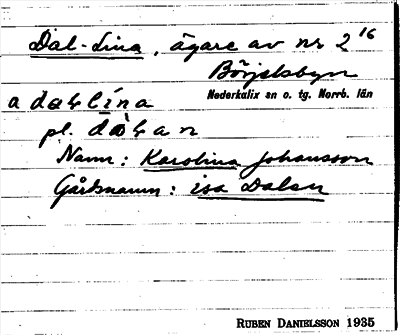 Dal-Lina, ägare av nr 2¹⁶
Börjelsbyn
Nederkalix sn o. tg. Norrb. län
a daꞎlína
pl. dàꞎan
Namn: Karolina Johansson
Gårdsnamn: isa Dalan
RUBEN DANIELSSON 1935